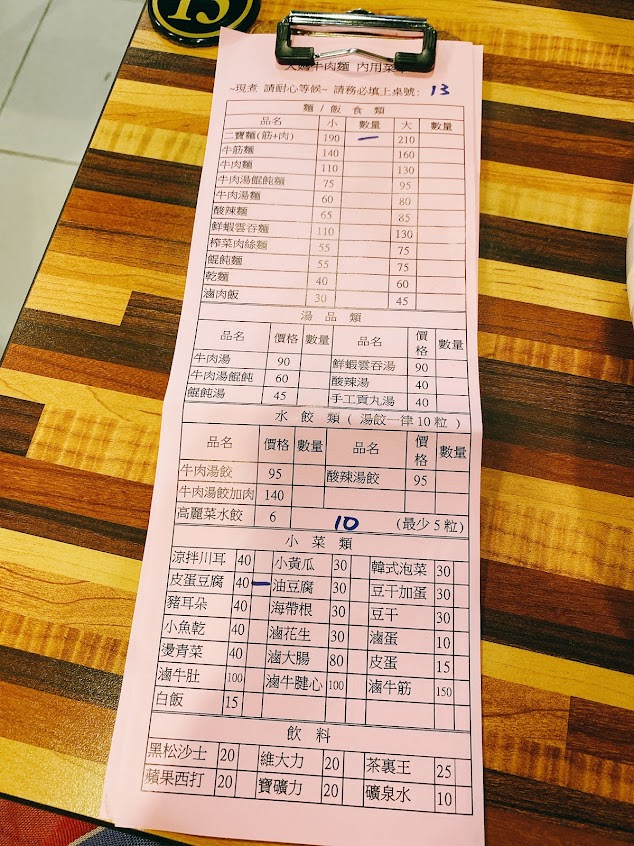 13
牛肉麵 內用菜
~現煮 請耐心等候~ 請務必填上桌號: 13
麵/飯食類
品名 小 數量 大 數量
二寶麵(筋+肉) 190 一 210
牛筋麵 140 160
牛肉麵 110 130
牛肉湯餛飩麵 75 95
牛肉湯麵 60 80
酸辣麵 65 85
鮮蝦雲吞麵 110 130
榨菜肉絲麵 55 75
餛飩麵 55 75
乾麵 40 60
滷肉飯 30 45
湯品類
品名 價格 數量 品名 價格 數量
牛肉湯 90 鮮蝦雲吞湯 90
牛肉湯餛飩 60 酸辣湯 40
餛飩湯 45 手工貢丸湯 40
水餃類(湯餃一律10粒)
品名 價格 數量 品名 價格 數量
牛肉湯餃 95 酸辣湯餃 95
牛肉湯餃加肉 140
高麗菜水餃 6 10 (最少5粒)
小菜類
涼拌川耳 40 小黃瓜 30 韓式泡菜 30
皮蛋豆腐 40 一 油豆腐 30 豆干加蛋 30
豬耳朵 40 海帶根 30 豆干 30
小魚乾 40 滷花生 30 滷蛋 10
燙青菜 40 滷大腸 80 皮蛋 15
滷牛肚 100 滷牛腱心 100 滷牛筋 150
白飯 15
飲料
黑松沙士 20 維大力 20 茶裏王 25
蘋果西打 20 寶礦力 20 礦泉水 10